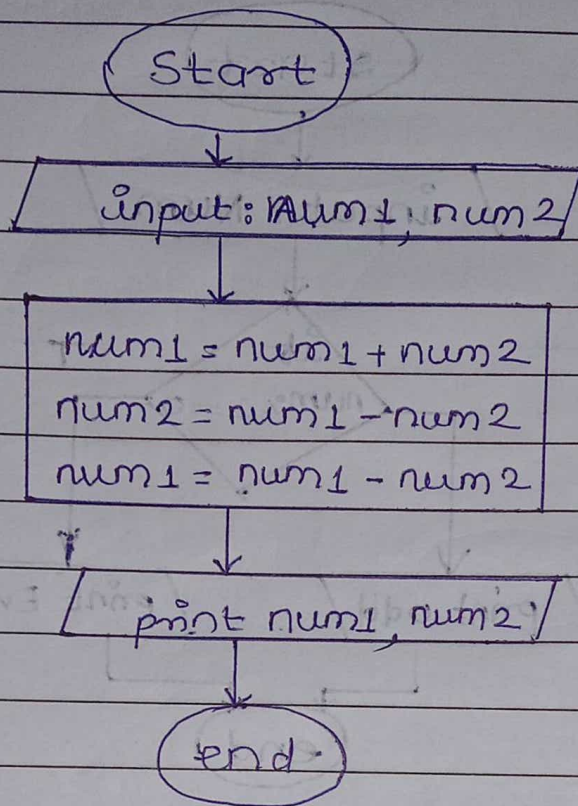 Start
input: num1, num2
num1 = num1 + num2
num2 = num1 - num2
num1 = num1 - num2
print num1, num2
end